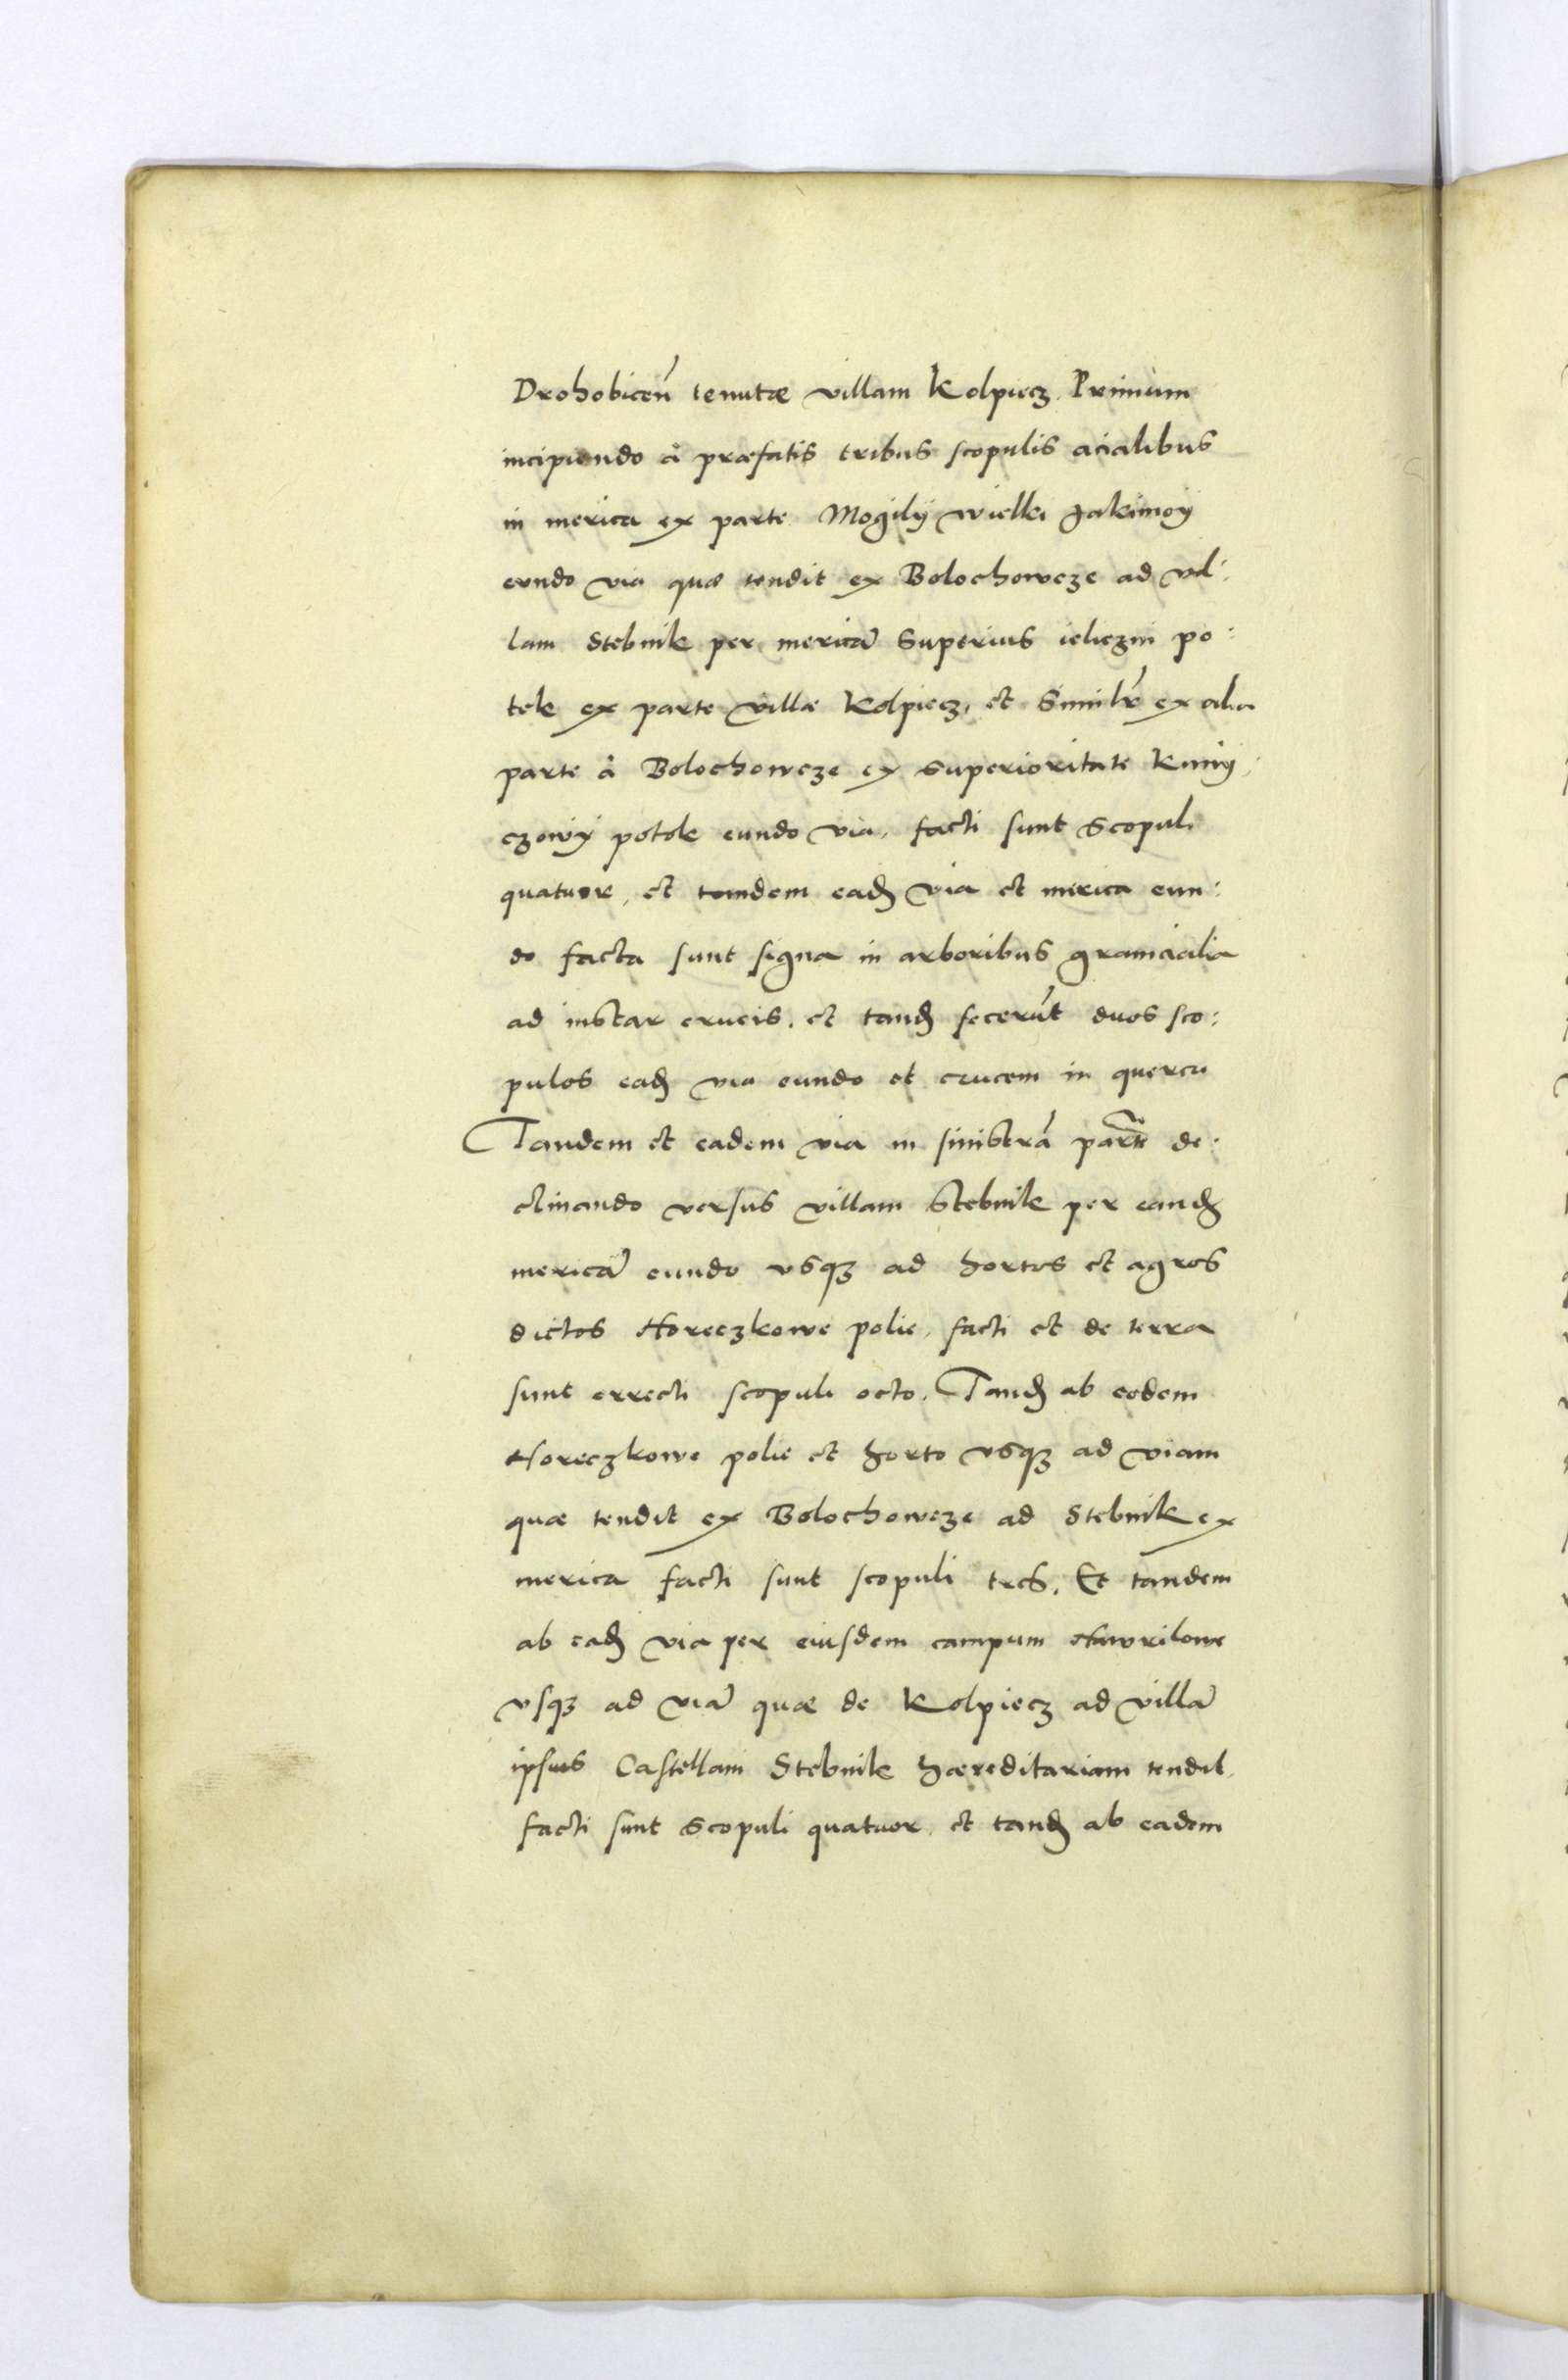 Drohobicen̄ tenutæ villam Kolpiecz. Primum
incipiendo à præfatis tribus scopulis acialibus
in merica ex parte Mogilÿ wielki Jakimoÿ
eundo via quæ tendit ex Bolochowcze ad vil:
lam Stebnik per mericā superius ieliczni po:
tok ex parte villæ Kolpiecz, et Similr̄ ex alia
parte à Bolochowcze ex superioritate Kniaÿ:
czowÿ potok eundo via, facti sunt scopuli
quatuor, et tandem eadȝ via et merica eun:
do facta sunt signa in arboribus granicialia
ad instar crucis, et tandȝ fecerūt duos sco:
pulos eadȝ via eundo et crucem in quercu
Tandem et eadem via in sinistrā partē de:
clinando versus villam Stebnik per eandȝ
mericā eundo vsqȝ ad hortos et agros
dictos Horeczkowe polie, facti et de terra
sunt errecti scopuli octo. Tandȝ ab eodem
Horeczkowe polie et horto vsqȝ ad viam
quæ tendit ex Bolochowcze ad Stebnik ex
merica facti sunt scopuli tres. Et tandem
ab eadȝ via per eiusdem campum Hawrilowe
vsqȝ ad viā quæ de Kolpiecz ad villā
ipsius Castellani Stebnik hæreditariam tendit,
facti sunt scopuli quatuor, et tandȝ ab eadem